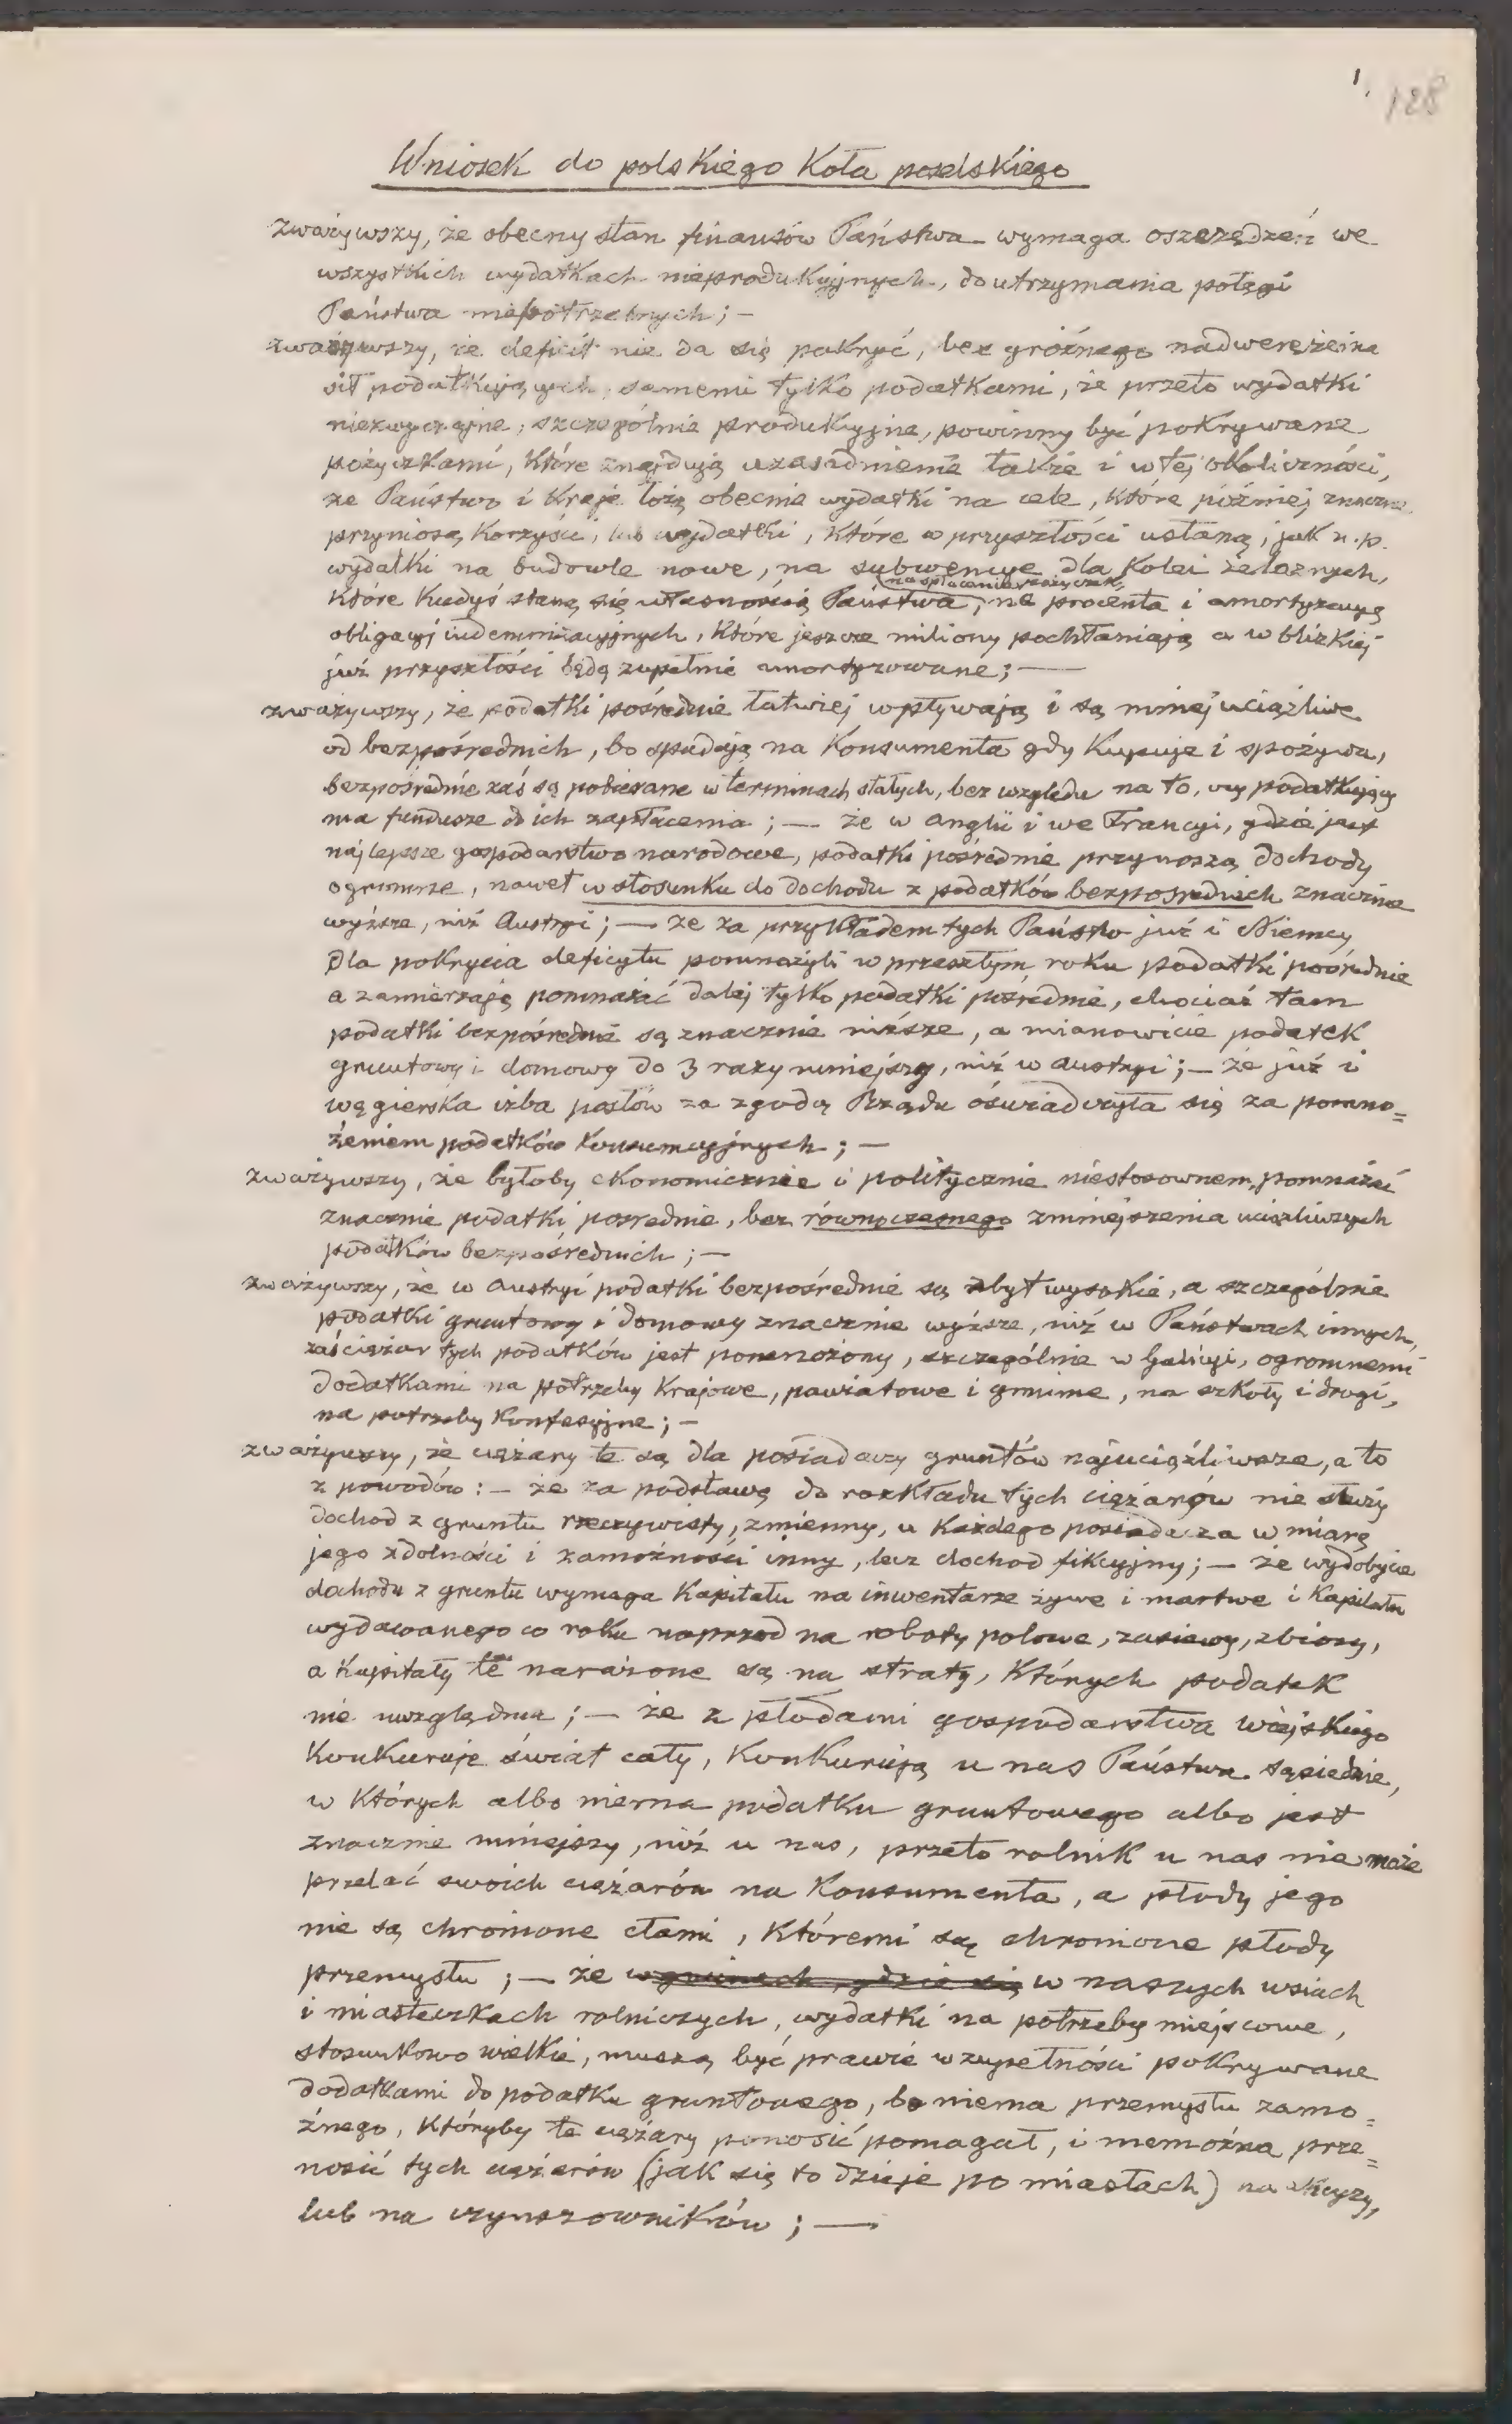 1.
128
Wniosek do polskiego Koła poselskiego
zważywszy, że obecny stan finansów Państwa wymaga oszczędzeń we
wszystkich wydatkach nieprodukcyjnych, do utrzymania potęgi
Państwa niepotrzebnych; —
zważywszy, że deficit nie da się pokryć, bez groźnego nadwerężenia
sił podatkujących, samemi tylko podatkami, że przeto wydatki
niezwyczajne, szczególnie produkcyjne, powinny być pokrywane
pożyczkami, które znajdują uzasadnienie także i w tej okoliczności,
że Państwo i Kraje łożą obecnie wydatki na cele, które później znaczne
przyniosą korzyści, lub wydatki, które w przyszłości ustaną, jak n. p.
wydatki na budowle nowe, na subwencye dla Kolei żelaznych,
na spłacanie pożyczek,
które kiedyś staną się własnością Państwa, na procenta i amortyzacyę
obligacyj indemnizacyjnych, które jeszcze miliony pochłaniają a w blizkiej
już przyszłości będą zupełnie amortyzowane; —
zważywszy, że podatki pośrednie łatwiej wpływają i są mniej uciążliwe
od bezpośrednich, bo spadają na Konsumenta gdy Kupuje i spożywa,
bezpośrednie zaś są pobierane w terminach stałych, bez względu na to, czy podatkujący
ma fundusze do ich zapłacenia; — że w Anglii i we Francyi, gdzie jest
najlepsze gospodarstwo narodowe, podatki pośrednie przynoszą dochody
ogromne, nawet w stosunku do dochodu z podatków bezpośrednich znacznie
wyższe, niż Austryi; — że za przykładem tych Państw już i Niemcy
dla pokrycia deficytu pomnożyli w przeszłym roku podatki pośrednie
a zamierzają pomnażać dalej tylko podatki pośrednie, chociaż tam
podatki bezpośrednie są znacznie niższe, a mianowicie podatek
gruntowy i domowy do 3 razy mniejszy, niż w Austryi; — że już i
węgierska izba posłów za zgodą Rządu oświadczyła się za pomno=
żeniem podatków Konsumcyjnych; —
zważywszy, że byłoby ekonomicznie i politycznie niestosownem, pomnażać
znacznie podatki pośrednie, bez równoczesnego zmniejszenia uciążliwszych
podatków bezpośrednich; —
zważywszy, że w Austryi podatki bezpośrednie są zbyt wysokie, a szczególnie
podatki gruntowy i domowy znacznie wyższe, niż w Państwach innych,
zaś ciężar tych podatków jest pomnożony, szczególnie w Galicyi, ogromnemi
dodatkami na potrzeby Krajowe, powiatowe i gminne, na szkoły i drogi,
na potrzeby Konfesyjne; —
zważywszy, że ciężary te są dla posiadaczy gruntów najuciążliwsze, a to
z powodów: — że za podstawę do rozkładu tych ciężarów nie służy
dochod z gruntu rzeczywisty, zmienny, u Każdego posiadacza w miarę
jego zdolności i zamożności inny, lecz dochod fikcyjny; — że wydobycie
dochodu z gruntu wymaga Kapitału na inwentarze żywe i martwe i Kapitału
wydawanego co roku naprzod na roboty polowe, zasiewy, zbiory,
a Kapitały te narażone są na straty, Których podatek
nie uwzględnia; — że z płodami gospodarstwa wiejskiego
Konkuruje świat cały, Konkurują u nas Państwa sąsiednie,
w Których albo niema podatku gruntowego albo jest
znacznie mniejszy, niż u nas, przeto rolnik u nas nie może
przelać swoich ciężarów na Konsumenta, a płody jego
nie są chronione cłami, Któremi są chronione płody
przemysłu; — że w gminach, gdzie się w naszych wsiach
i miasteczkach rolniczych, wydatki na potrzeby miejscowe,
stosunkowo wielkie, muszą być prawie w zupełności pokrywane
dodatkami do podatku gruntowego, bo niema przemysłu zamo=
żnego, Któryby te ciężary ponosić pomagał, i niemożna prze=
nosić tych ciężarów (jak się to dzieje po miastach) na
lub na czynszowników; —